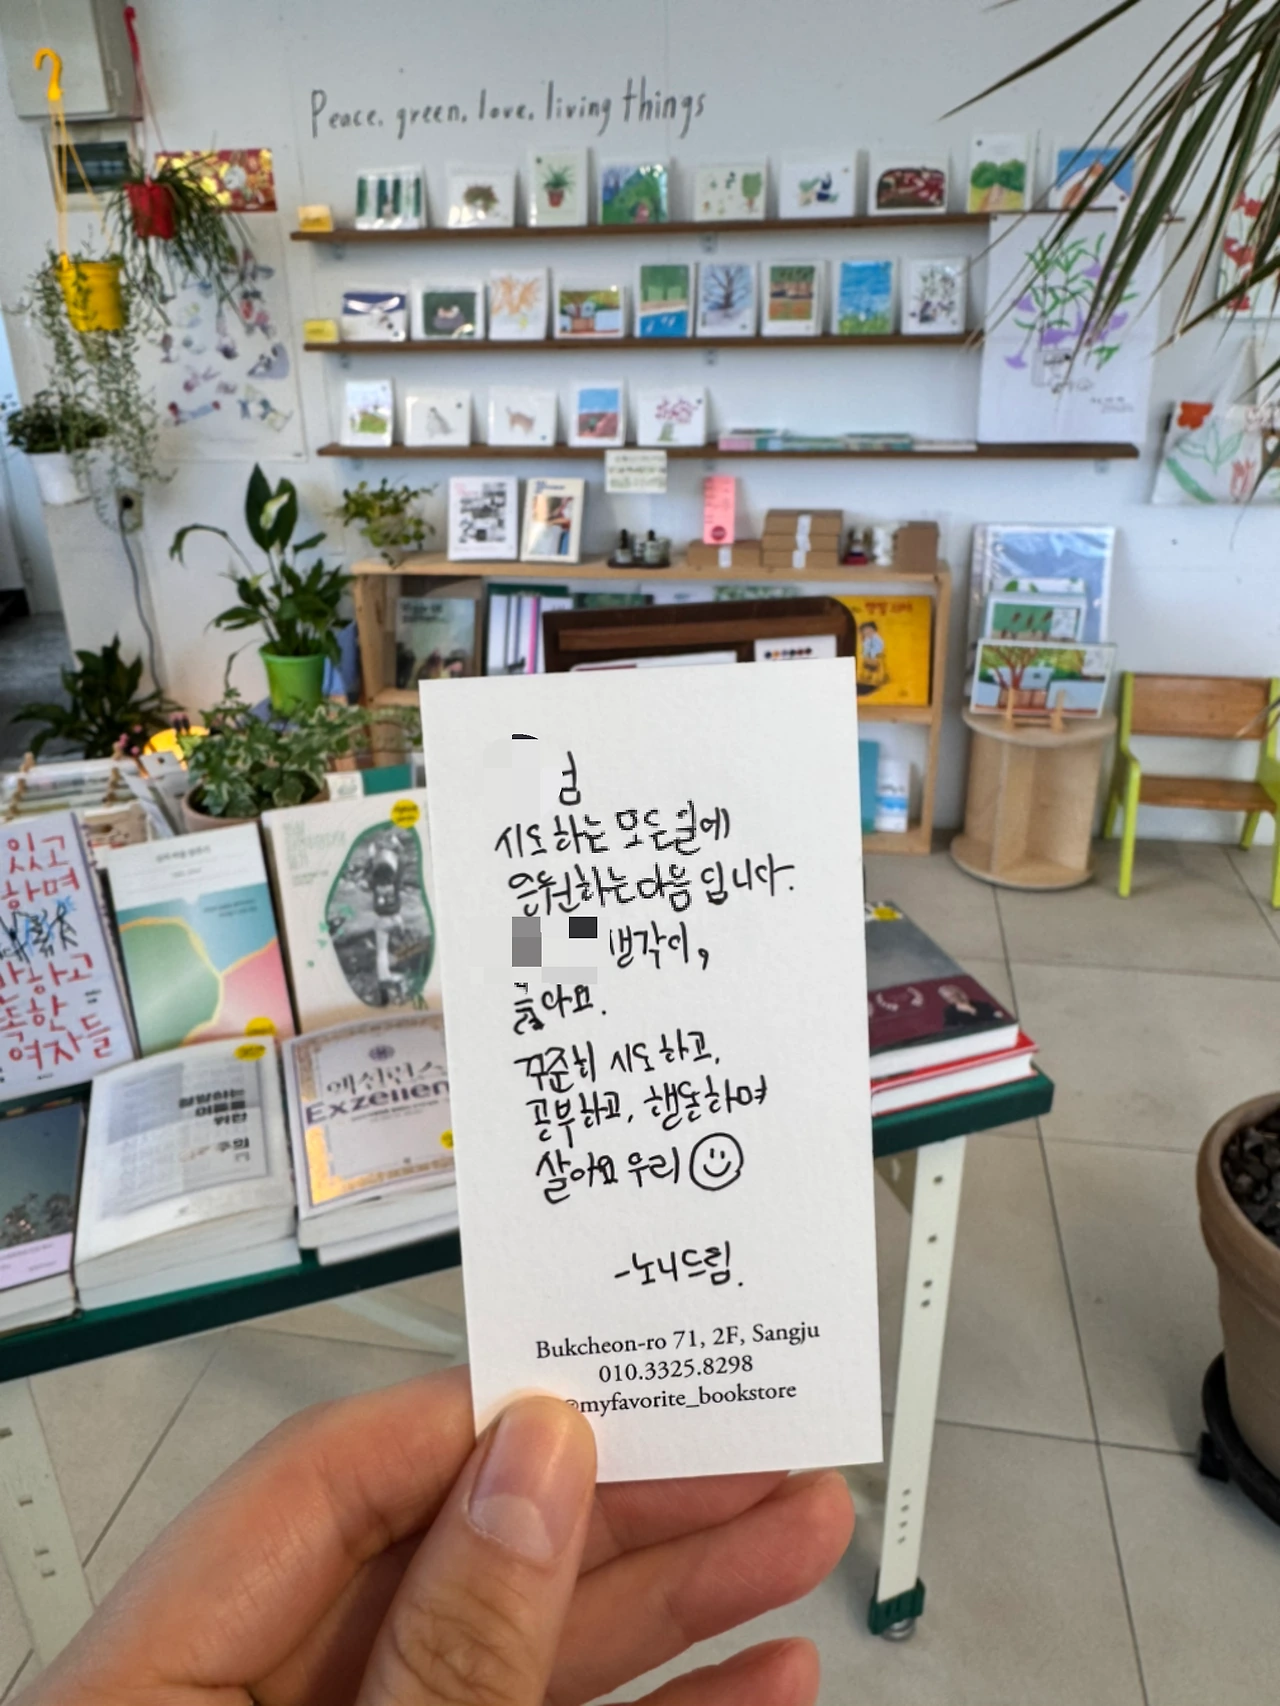 Peace, green, love, living things
님
시도하는 모든 일에
응원하는 마음 입니다.
생각이,
좋아요.
꾸준히 시도하고,
공부하고, 행동하며
살아요 우리
-노니드림.
Bukcheon-ro 71, 2F, Sangju
010.3325.8298
@myfavorite_bookstore
있고
하며
하고
독한
여자들
에쉬런스
Exzellen